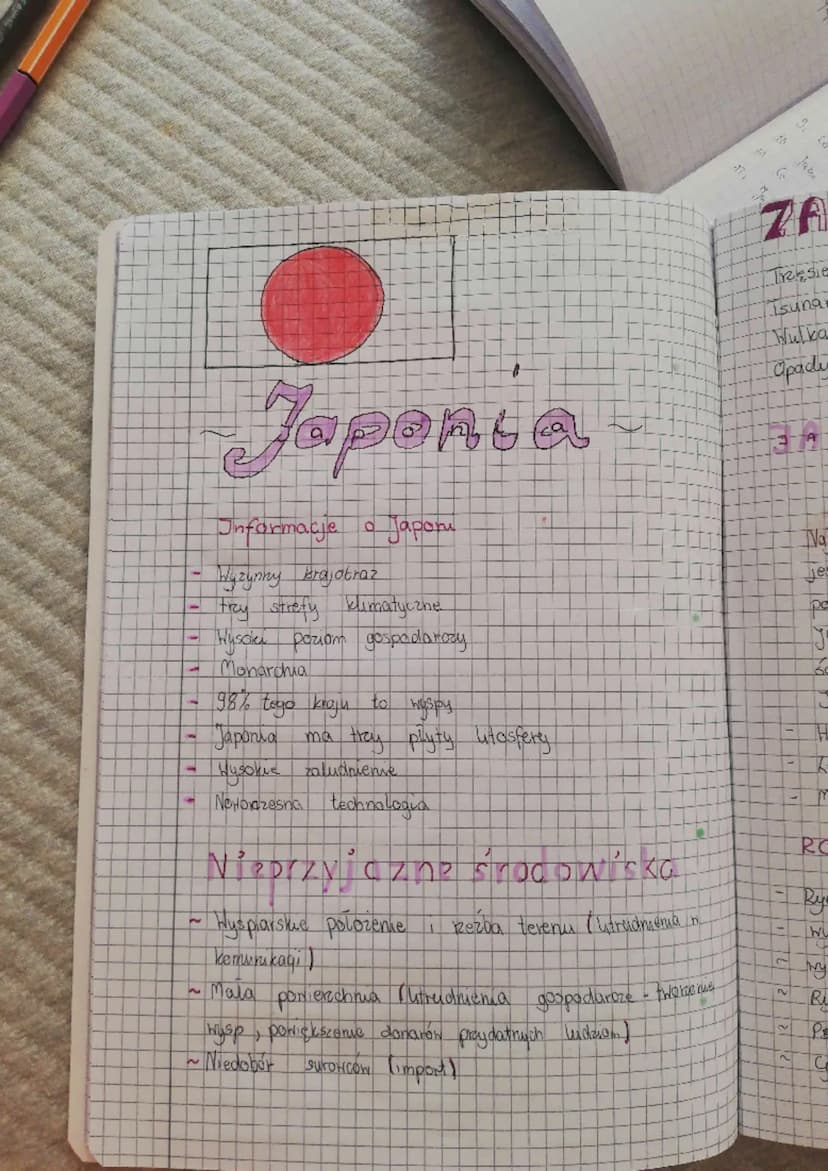 ~ Japonia ~
Informacje o Japoni
- Wyżynny krajobraz
- trzy strefy klimatyczne
- Wysoki poziom gospodarczy
- Monarchia
- 98% tego kraju to wyspy
- Japonia ma trzy płyty litosfery
- Wysokie zaludnienie
- Nowoczesna technologia
Nieprzyjazne środowiska
~ Wyspiarskie położenie i rzeźba terenu (utrudnienia w
komunikacji)
~ Mała powierzchnia (utrudnienia gospodarcze - tworzenie
wysp, powiększenie obszarów przydatnych ludziom)
~ Niedobór surowców (import)
ZA
Trzęsie
Tsuna
Wulka
Opady
JA
Na
je
po
RO
- Ry
- wy
~ wy
~ Ry